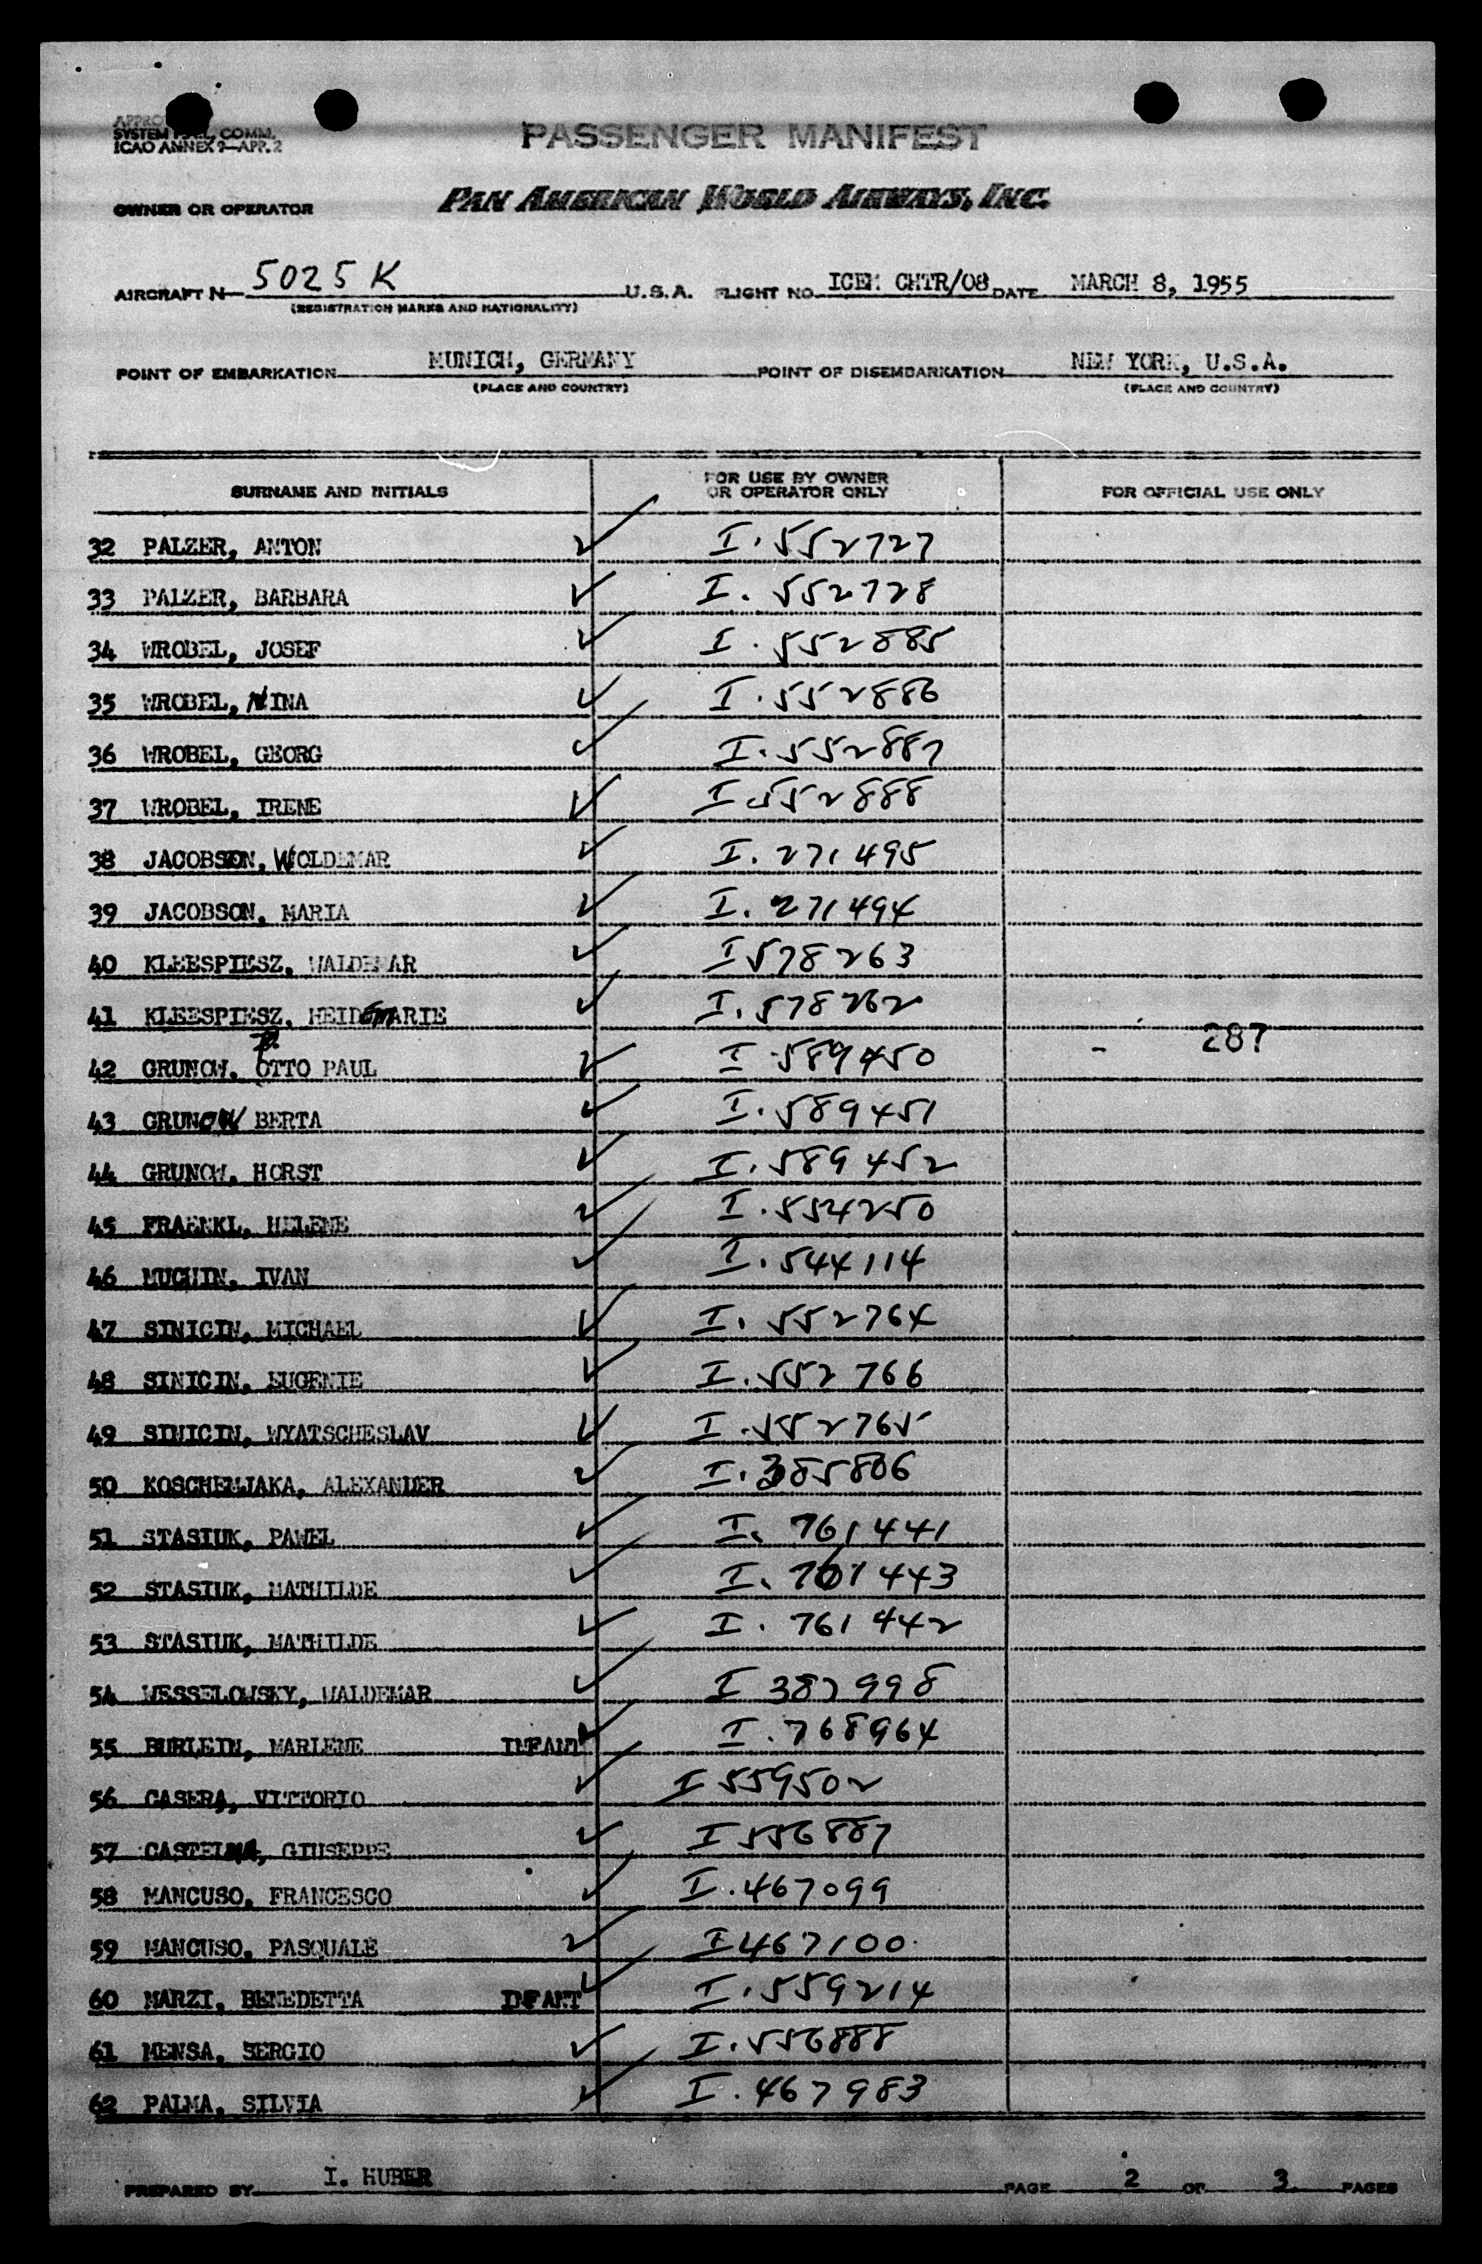 SYSTEM COMM.
ICAO ANNEX 9—APP. 2
PASSENGER MANIFEST
OWNER OR OPERATOR PAN AMERICAN WORLD AIRWAYS, INC.
AIRCRAFT N 5025 K U.S.A. FLIGHT NO. ICEM CHTR/08 DATE MARCH 8, 1955
(REGISTRATION MARKS AND NATIONALITY)
POINT OF EMBARKATION MUNICH, GERMANY POINT OF DISEMBARKATION NEW YORK, U.S.A.
(PLACE AND COUNTRY) (PLACE AND COUNTRY)
SURNAME AND INITIALS FOR USE BY OWNER OR OPERATOR ONLY FOR OFFICIAL USE ONLY
32 PALZER, ANTON ✓ I.552727
33 PALZER, BARBARA ✓ I.552728
34 WROBEL, JOSEF ✓ I.552885
35 WROBEL, NINA ✓ I.552886
36 WROBEL, GEORG ✓ I.552887
37 WROBEL, IRENE ✓ I 552888
38 JACOBSON, WOLDEMAR ✓ I.271495
39 JACOBSON, MARIA ✓ I.271494
40 KLEESPIESZ, WALDEMAR ✓ I 578263
41 KLEESPIESZ, HEIDEMARIE ✓ I.578262
42 GRUNOW, OTTO PAUL ✓ I 589450 - 287
43 GRUNOW BERTA ✓ I.589451
44 GRUNOW, HORST ✓ I.589452
45 FRAENKL, HELENE ✓ I.554250
46 MUCHIN, IVAN ✓ I.544114
47 SINICIN, MICHAEL ✓ I.552764
48 SINICIN, EUGENIE ✓ I.552766
49 SINICIN, WYATSCHESLAV ✓ I.552765
50 KOSCHEMJAKA, ALEXANDER ✓ I.385806
51 STASIUK, PAWEL ✓ I.761441
52 STASIUK, MATHILDE ✓ I.761443
53 STASIUK, MATHILDE ✓ I.761442
54 WESSELOWSKY, WALDEMAR ✓ I 387998
55 BURLEIN, MARLENE INFANT ✓ I.768964
56 CASERA, VITTORIO ✓ I 559502
57 GIUSEPPE ✓ I 556887
58 MANCUSO, FRANCESCO ✓ I.467099
59 MANCUSO, PASQUALE ✓ I 467100
60 MARZI, BENEDETTA INFANT ✓ I.559214
61 MENSA, SERGIO ✓ I.556888
62 PALMA, SILVIA ✓ I.467983
PREPARED BY I. HUBER PAGE 2 OF 3 PAGES